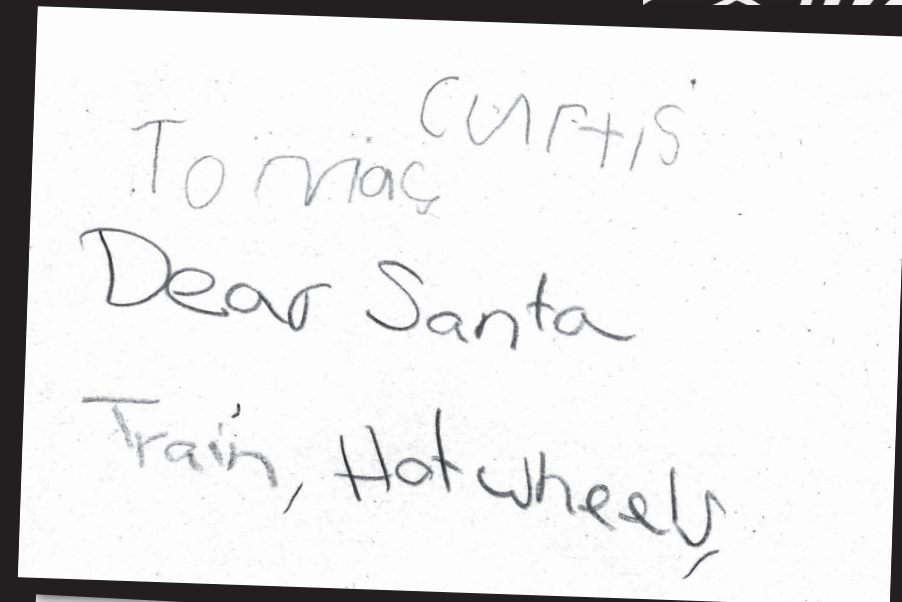 Curtis
Tomias
Dear Santa
Train, Hot wheels,